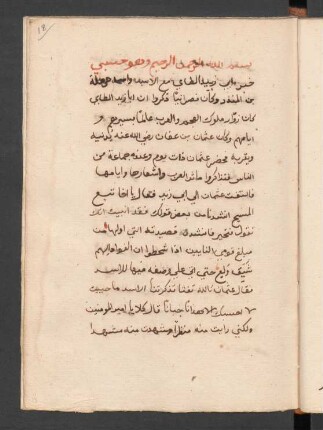 بسم الله الرحمن الرحيم وهو حسبي
خبر ابي زبيد الطاي مع الاسد واسمه حرملة
بن المنذر وكان نصرانيا ذكروا ان ابا زبيد الطاي
كان زوار ملوك العجم والعرب عالما بسيرهم و
ايامهم وكان عثمان بن عفان رضي الله عنه يدنيه
ويقربه فحضر عثمان ذات يوم وعنده جماعة من
الناس فتذاكروا ماثر العرب واشعارها وايامها
فالتفت عثمان الي ابي زبيد فقال يا اخا تبع
المسيح انشدنا من بعض قولك فقد انبيت انك
تقول فتجيد فانشده قصيدته التي اولها من
مبلغ قومي النايين اذا شحطوا ان الفواد اليهم
شيق ولع حتي اتي علي وصفه فيها للاسد
فقال عثمان تالله تفتا تذكر الاسد ما حييت
لا حسبك الا هدانا جبانا قال كلا يا امير المومنين
ولكني رايت منه منظرا وشهدت منه مشهدا